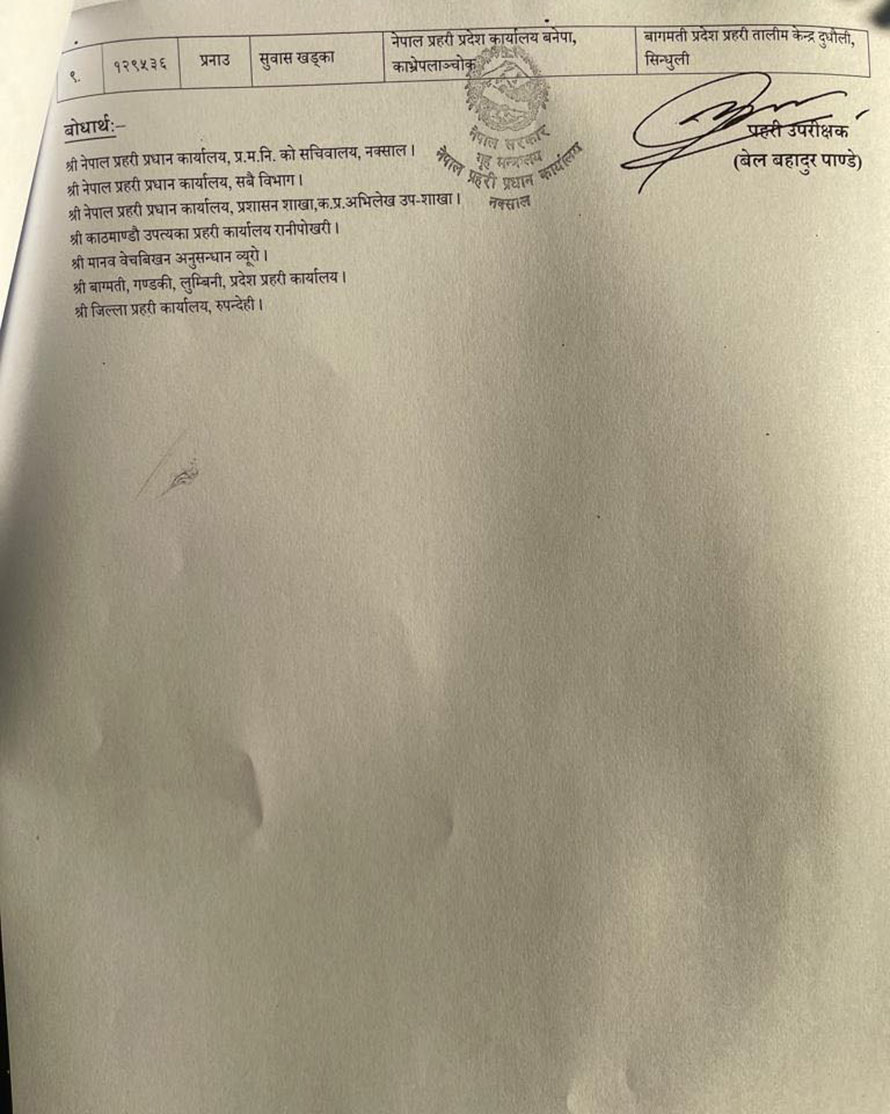 ९. १२९५३६ प्रनाउ सुवास खड्का नेपाल प्रहरी प्रदेश कार्यालय बनेपा, बागमती प्रदेश प्रहरी तालीम केन्द्र दुधौली,
काभ्रेपलाञ्चोक सिन्धुली
बोधार्थ:–
श्री नेपाल प्रहरी प्रधान कार्यालय, प्र.म.नि. को सचिवालय, नक्साल।
श्री नेपाल प्रहरी प्रधान कार्यालय, सबै विभाग।
श्री नेपाल प्रहरी प्रधान कार्यालय, प्रशासन शाखा,क.प्र.अभिलेख उप-शाखा।
श्री काठमाण्डौ उपत्यका प्रहरी कार्यालय रानीपोखरी।
श्री मानव वेचबिखन अनुसन्धान व्यूरो।
श्री बाग्मती, गण्डकी, लुम्बिनी, प्रदेश प्रहरी कार्यालय।
श्री जिल्ला प्रहरी कार्यालय, रुपन्देही।
नेपाल सरकार
गृह मन्त्रालय
नेपाल प्रहरी प्रधान कार्यालय
नक्साल
प्रहरी उपरीक्षक
(बेल बहादुर पाण्डे)